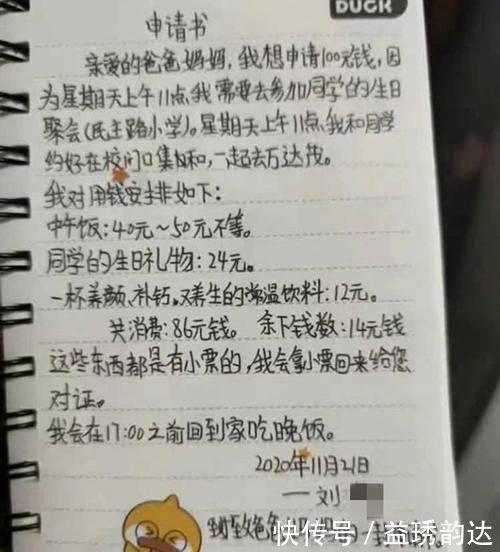 DUCK
申请书
亲爱的爸爸妈妈,我想申请100元钱,因
为星期天上午11点,我需要去参加同学的生日
聚会(民主路小学)。星期天上午11点,我和同学
约好在校门口集合,一起去万达茂。
我对用钱安排如下:
中午饭:40元~50元不等。
同学的生日礼物:24元。
一杯养颜、补钙,又养生的常温饮料:12元。
共消费:86元钱。 余下钱数:14元钱
这些东西都是有小票的,我会拿小票回来给您
对证。
我会在17:00之前回到家吃晚饭。
2020年11月21日
——刘
快传号/益琇韵达